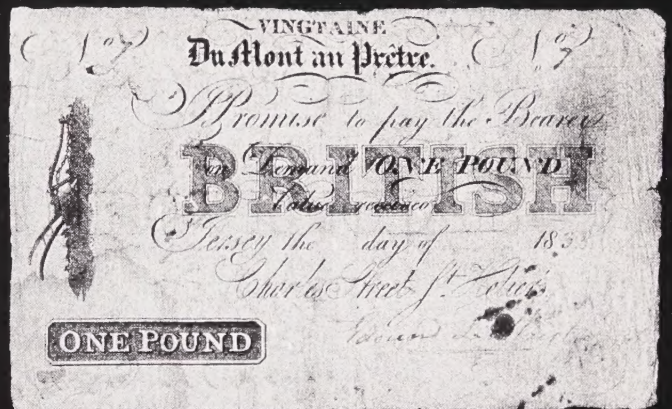 VINGTAINE
Du Mont au Prêtre.
No 7 No 7
I Promise to pay the Bearer
on Demand ONE POUND
BRITISH
Value received
Jersey the day of 183
Charles Street St. Helier's
ONE POUND